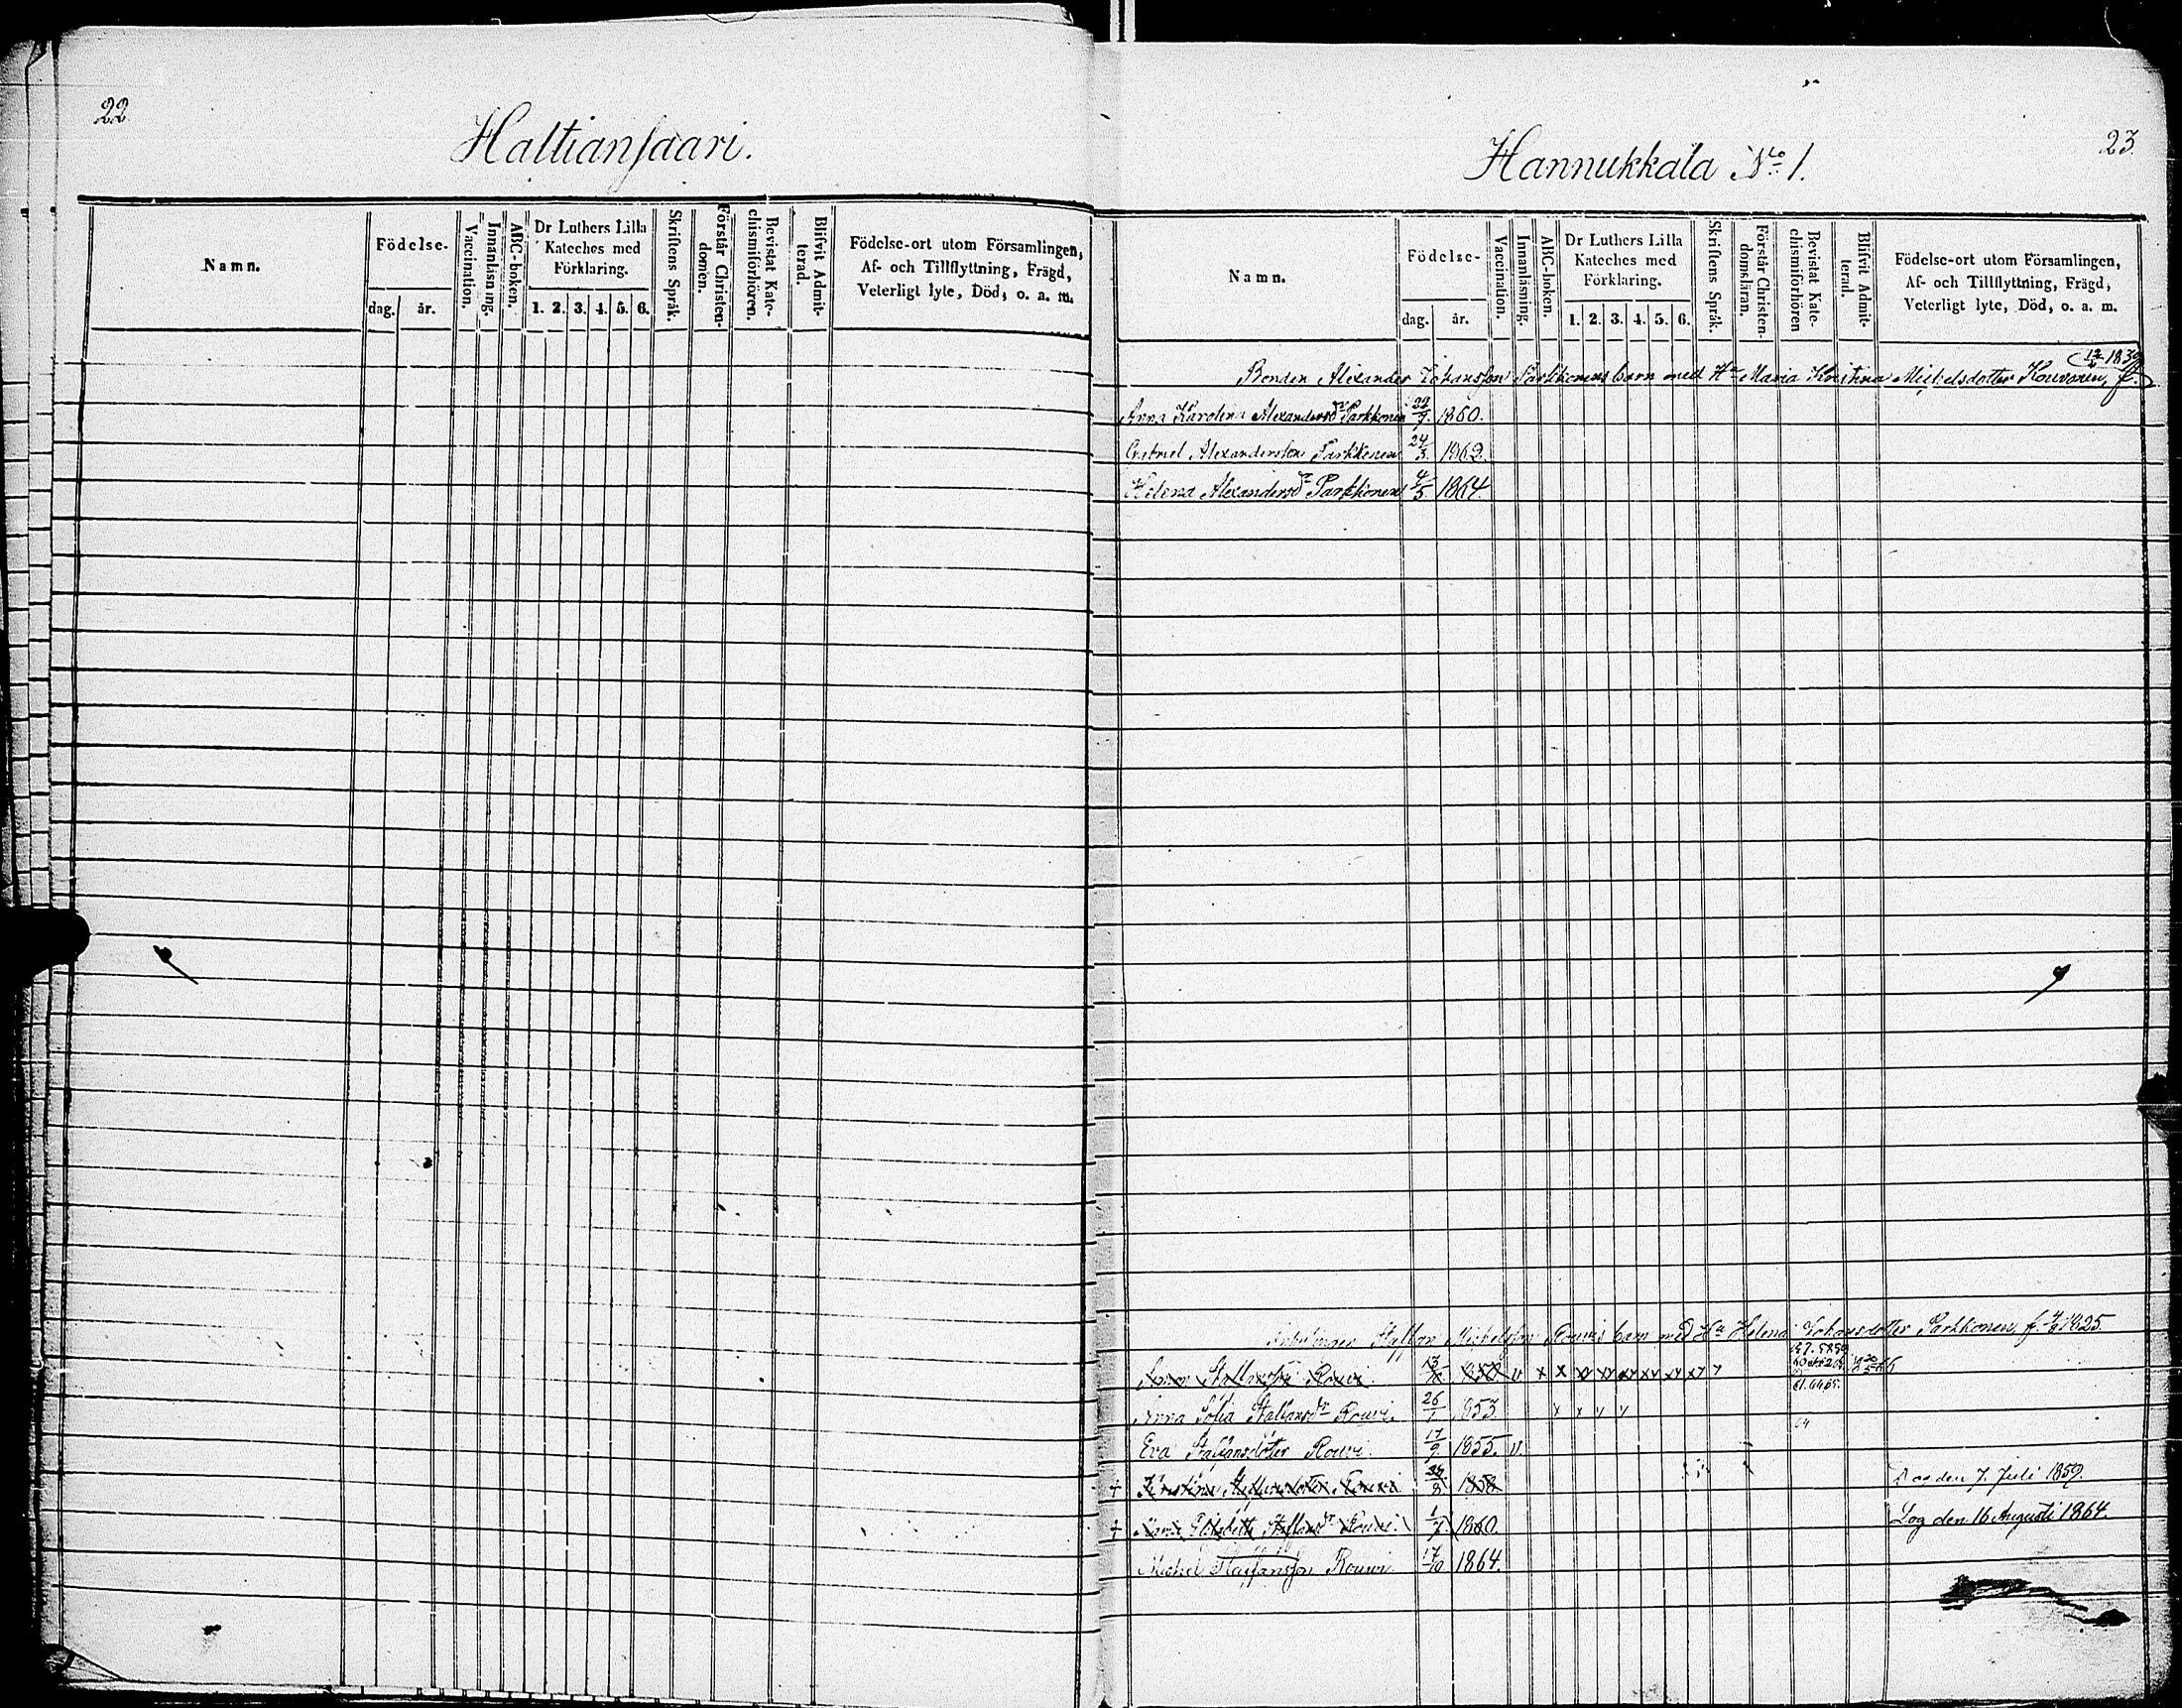 22
Haltiansaari.
Namn.
Födelse-
dag. år.
Vaccination.
Innanläsning.
ABC-boken.
Dr Luthers Lilla
Kateches med
Förklaring.
1. 2. 3. 4. 5. 6.
Skriftens Språk.
Förstår Christen-
domen.
Bevistat Kate-
chismiförhören.
Blifvit Admit-
terad.
Födelse-ort utom Församlingen,
Af- och Tillflyttning, Frägd,
Veterligt lyte, Död, o. a. m.
23.
Hannukkala No 1.
Namn.
Födelse-
dag. år.
Vaccination.
Innanläsning.
ABC-boken.
Dr Luthers Lilla
Kateches med
Förklaring.
1. 2. 3. 4. 5. 6.
Skriftens Språk.
Förstår Christen-
domsläran.
Bevistat Kate-
chismiförhören
Blifvit Admit-
terad.
Födelse-ort utom Församlingen,
Af- och Tillflyttning, Frägd,
Veterligt lyte, Död, o. a. m.
Bonden Alexander Johansson Parkkonens barn med Hu Maria Kristina Mickelsdotter Kouvonen, f. 1839
Anna Karolina Alexandersdr Parkkonen 22/9 1860.
Gabriel Alexandersson Parkkonen 24/3 1862.
Helena Alexandersdr Parkkonen 4/5 1864
Staffan Mickelsson Rouvis barn med Hu Helena Johansdotter Parkkonen, f. 1825
Staffansson Rouvi 1850 v x x
Anna Sofia Staffansdr Rouvi. 26/1 1853
Eva Staffansdotter Rouvi 17/9 1855. v.
† Kristina Staffansdotter Rouvi 1858 Dog den 7. Juli 1859.
† Maria Elisabeth Staffansdr Rouvi. 1/7 1860. Dog den 16 Augusti 1864.
Mickel Staffansson Rouvi 17/10 1864.